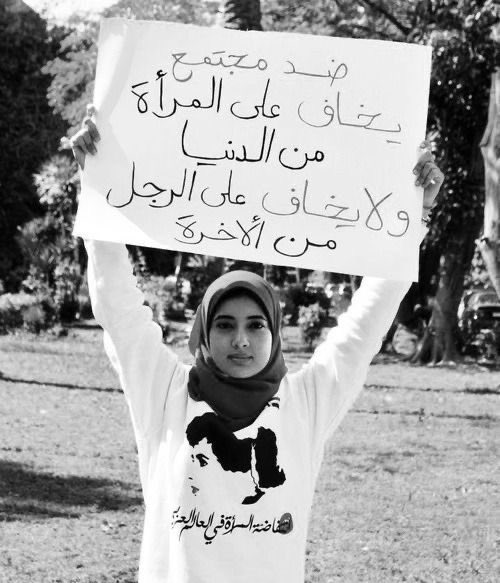 ضد مجتمع
يخاف على المرأة
من الدنيا
ولا يخاف على الرجل
من ألاخرة
انتفاضة المرأة في العالم العربي